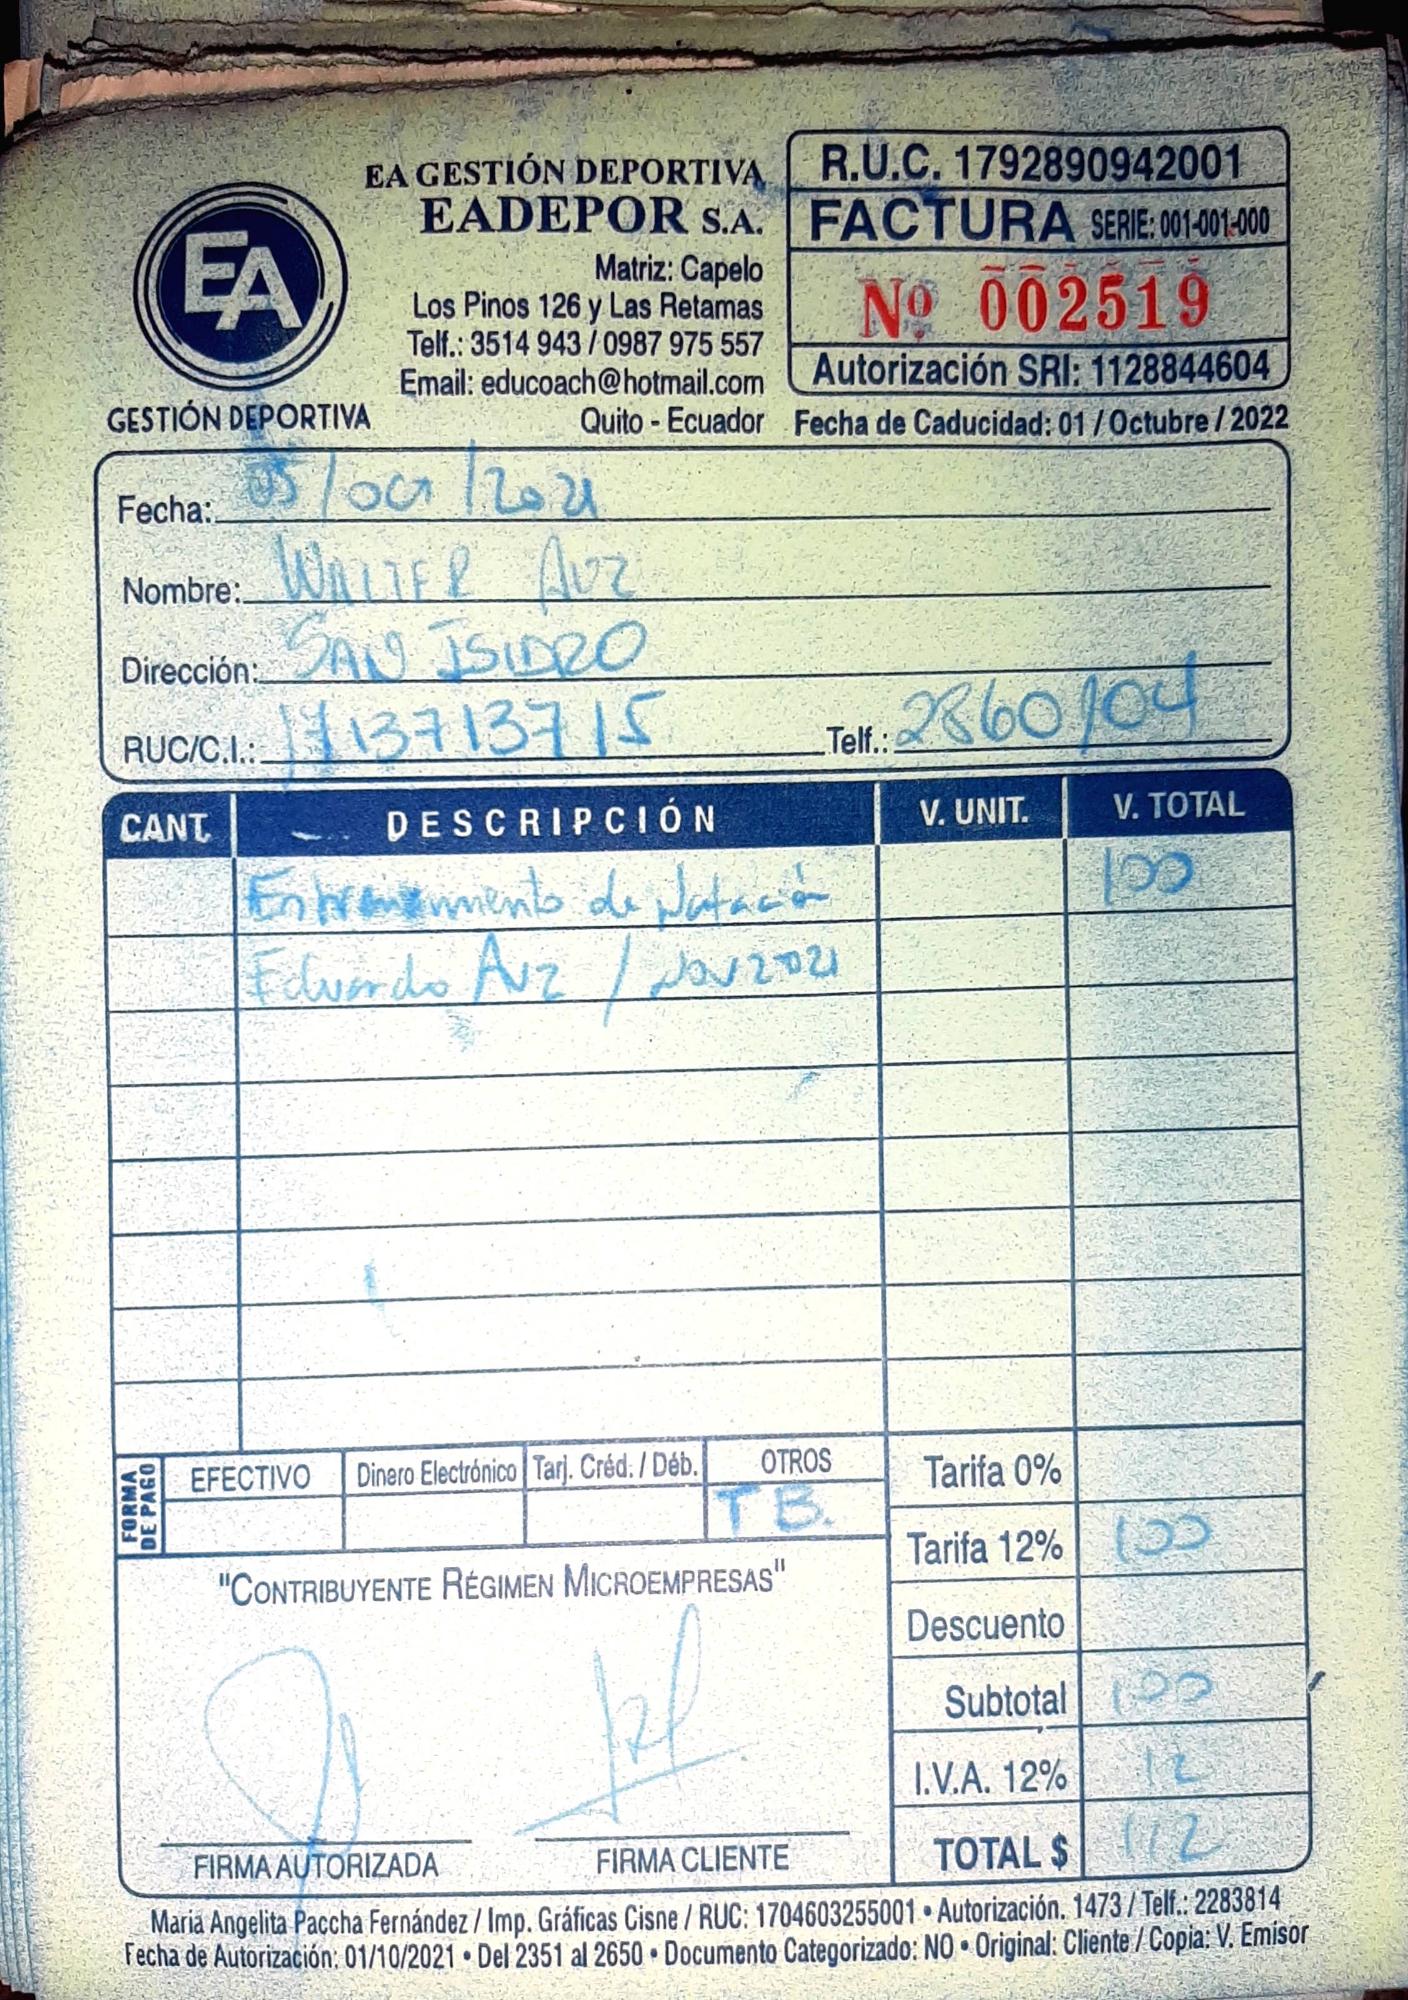 EA
GESTIÓN DEPORTIVA
EA GESTIÓN DEPORTIVA
EADEPOR S.A.
Matriz: Capelo
Los Pinos 126 y Las Retamas
Telf.: 3514 943 / 0987 975 557
Email: educoach@hotmail.com
Quito - Ecuador
R.U.C. 1792890942001
FACTURA SERIE: 001-001-000
Nº 002519
Autorización SRI: 1128844604
Fecha de Caducidad: 01 / Octubre / 2022
Fecha: 05/oct/2021
Nombre: WALTER
Dirección: SAN ISIDRO
RUC/C.I.: 1713713715 Telf.: 2860104
CANT. DESCRIPCIÓN V. UNIT. V. TOTAL
Entrenamiento de Natación 100
Eduardo / Nov 2021
FORMA DE PAGO EFECTIVO Dinero Electrónico Tarj. Créd. / Déb. OTROS
T B.
Tarifa 0%
Tarifa 12% 100
Descuento
Subtotal 100
I.V.A. 12% 12
TOTAL $ 112
"CONTRIBUYENTE RÉGIMEN MICROEMPRESAS"
FIRMA AUTORIZADA FIRMA CLIENTE
Maria Angelita Paccha Fernández / Imp. Gráficas Cisne / RUC: 1704603255001 • Autorización. 1473 / Telf.: 2283814
Fecha de Autorización: 01/10/2021 • Del 2351 al 2650 • Documento Categorizado: NO • Original: Cliente / Copia: V. Emisor